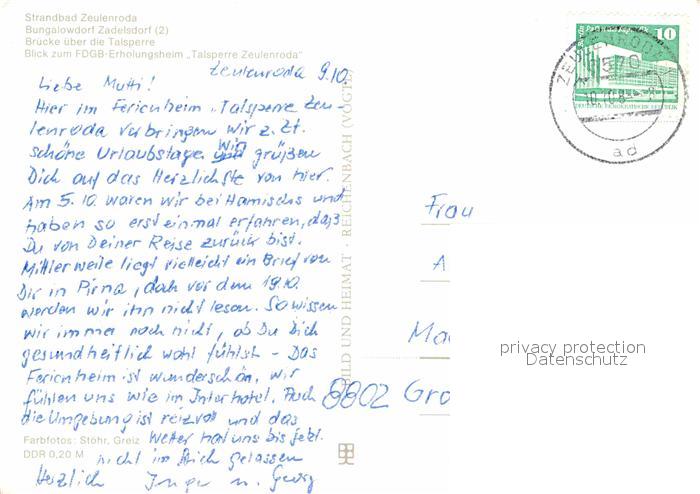 Strandbad Zeulenroda
Bungalowdorf Zadelsdorf (2)
Brücke über die Talsperre
Blick zum FDGB-Erholungsheim „Talsperre Zeulenroda"
Zeulenroda 9.10.
Liebe Mutti!
Hier im Ferienheim „Talsperre Zeu-
lenroda verbringen wir z. Zt.
schöne Urlaubstage. Wir grüßen
Dich auf das Herzlichste von hier.
Am 5.10. waren wir bei Hamischs und
haben so erst einmal erfahren, daß
Du von Deiner Reise zurück bist.
Mittlerweile liegt vielleicht ein Brief von
Dir in Pirna, doch vor dem 19.10.
werden wir ihn nicht lesen. So wissen
wir immer noch nicht, ob Du Dich
gesundheitlich wohl fühlst – Das
Ferienheim ist wunderschön, wir
fühlen uns wie im Interhotel. Auch
die Umgebung ist reizvoll und das
Wetter hat uns bis jetzt
nicht im Stich gelassen
Herzlich Inge u. Georg
Farbfotos: Stöhr, Greiz
DDR 0,20 M
BILD UND HEIMAT · REICHENBACH (VOGTL)
10
ZEULENRODA
6570
ad
DEUTSCHE DEMOKRATISCHE REPUBLIK
Frau
A
Ma
8802 Gro
privacy protection
Datenschutz